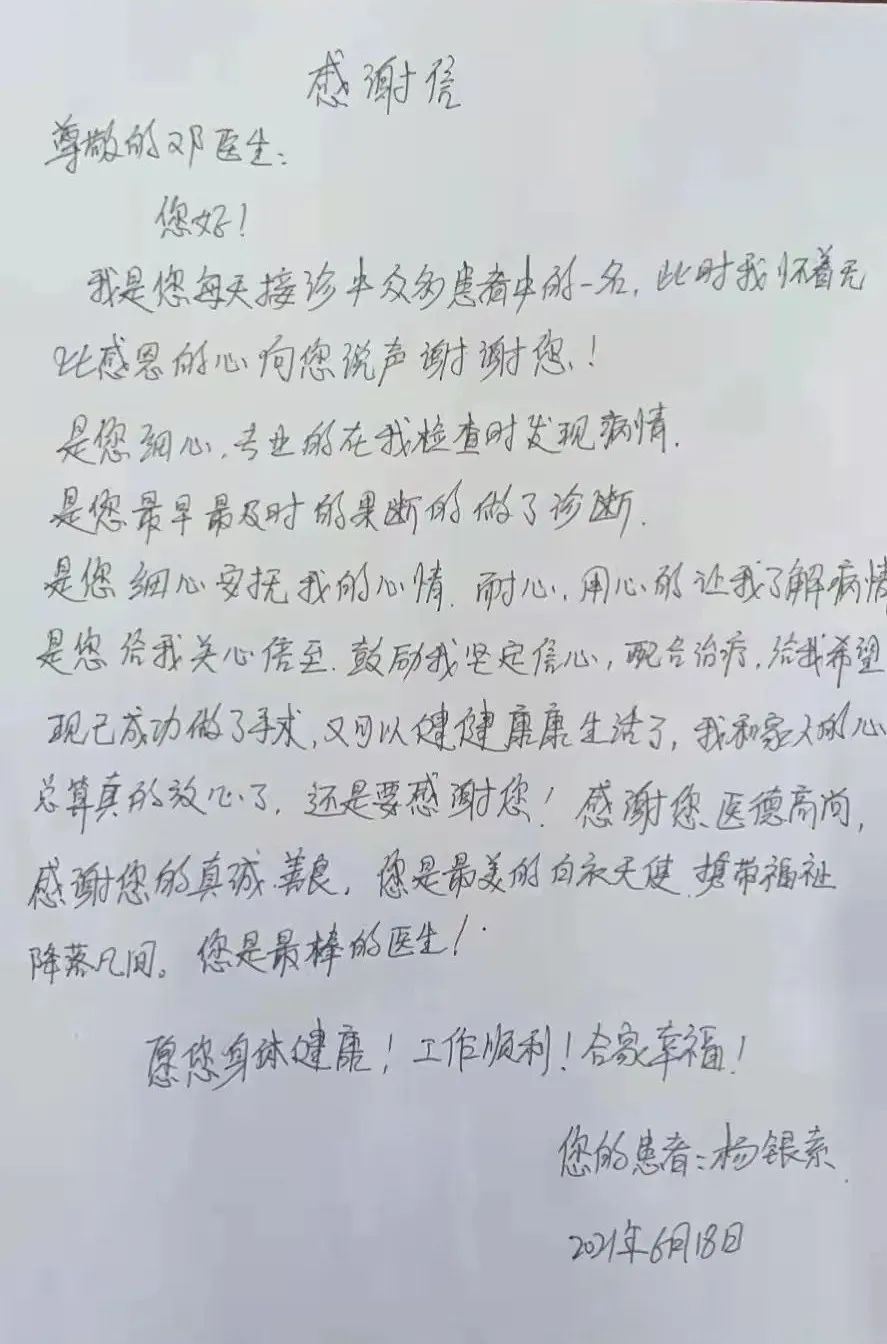 感谢信
尊敬的邓医生：
您好！
我是您每天接诊中众多患者中的一名，此时我怀着无
比感恩的心向您说声谢谢您！
是您细心，专业的在我检查时发现病情．
是您最早最及时的果断的做了诊断．
是您细心安抚我的心情．耐心，用心的让我了解病情
是您给我关心倍至．鼓励我坚定信心，配合治疗，给我希望
现已成功做了手术，又可以健健康康生活了，我和家人的心
总算真的放心了．还是要感谢您！感谢您、医德高尚，
感谢您的真诚．善良，您是最美的白衣天使．携带福祉
降落凡间。您是最棒的医生！
愿您身体健康！工作顺利！合家幸福！
您的患者：杨银素
2021年6月18日